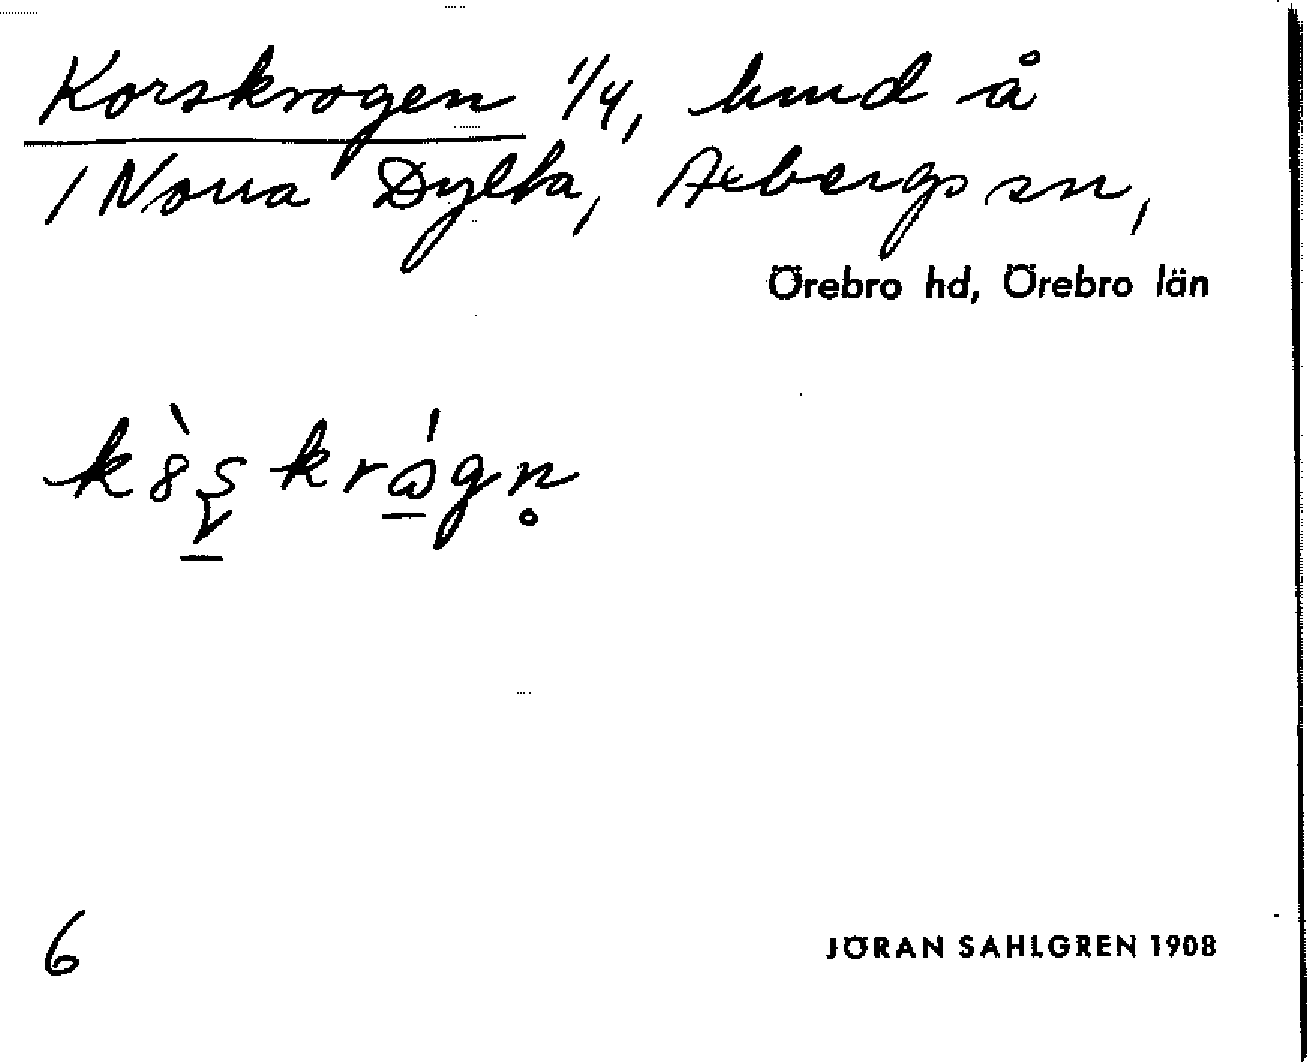 Korskrogen 1/4, hmd å
1 Norra Dylta, Axbergs sn,
Örebro hd, Örebro län
kràgn̥
6
JÖRAN SAHLGREN 1908